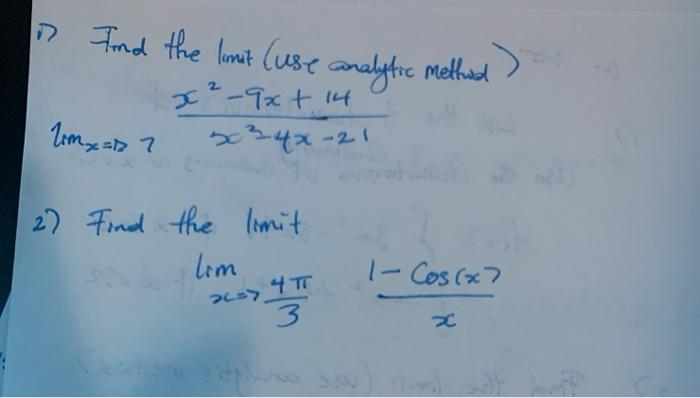 1) Find the limit (use analytic method)
x² - 9x + 14
lim x=> 7 x² - 4x - 21
2) Find the limit
lim x=> 4π/3 1 - Cos(x)
x